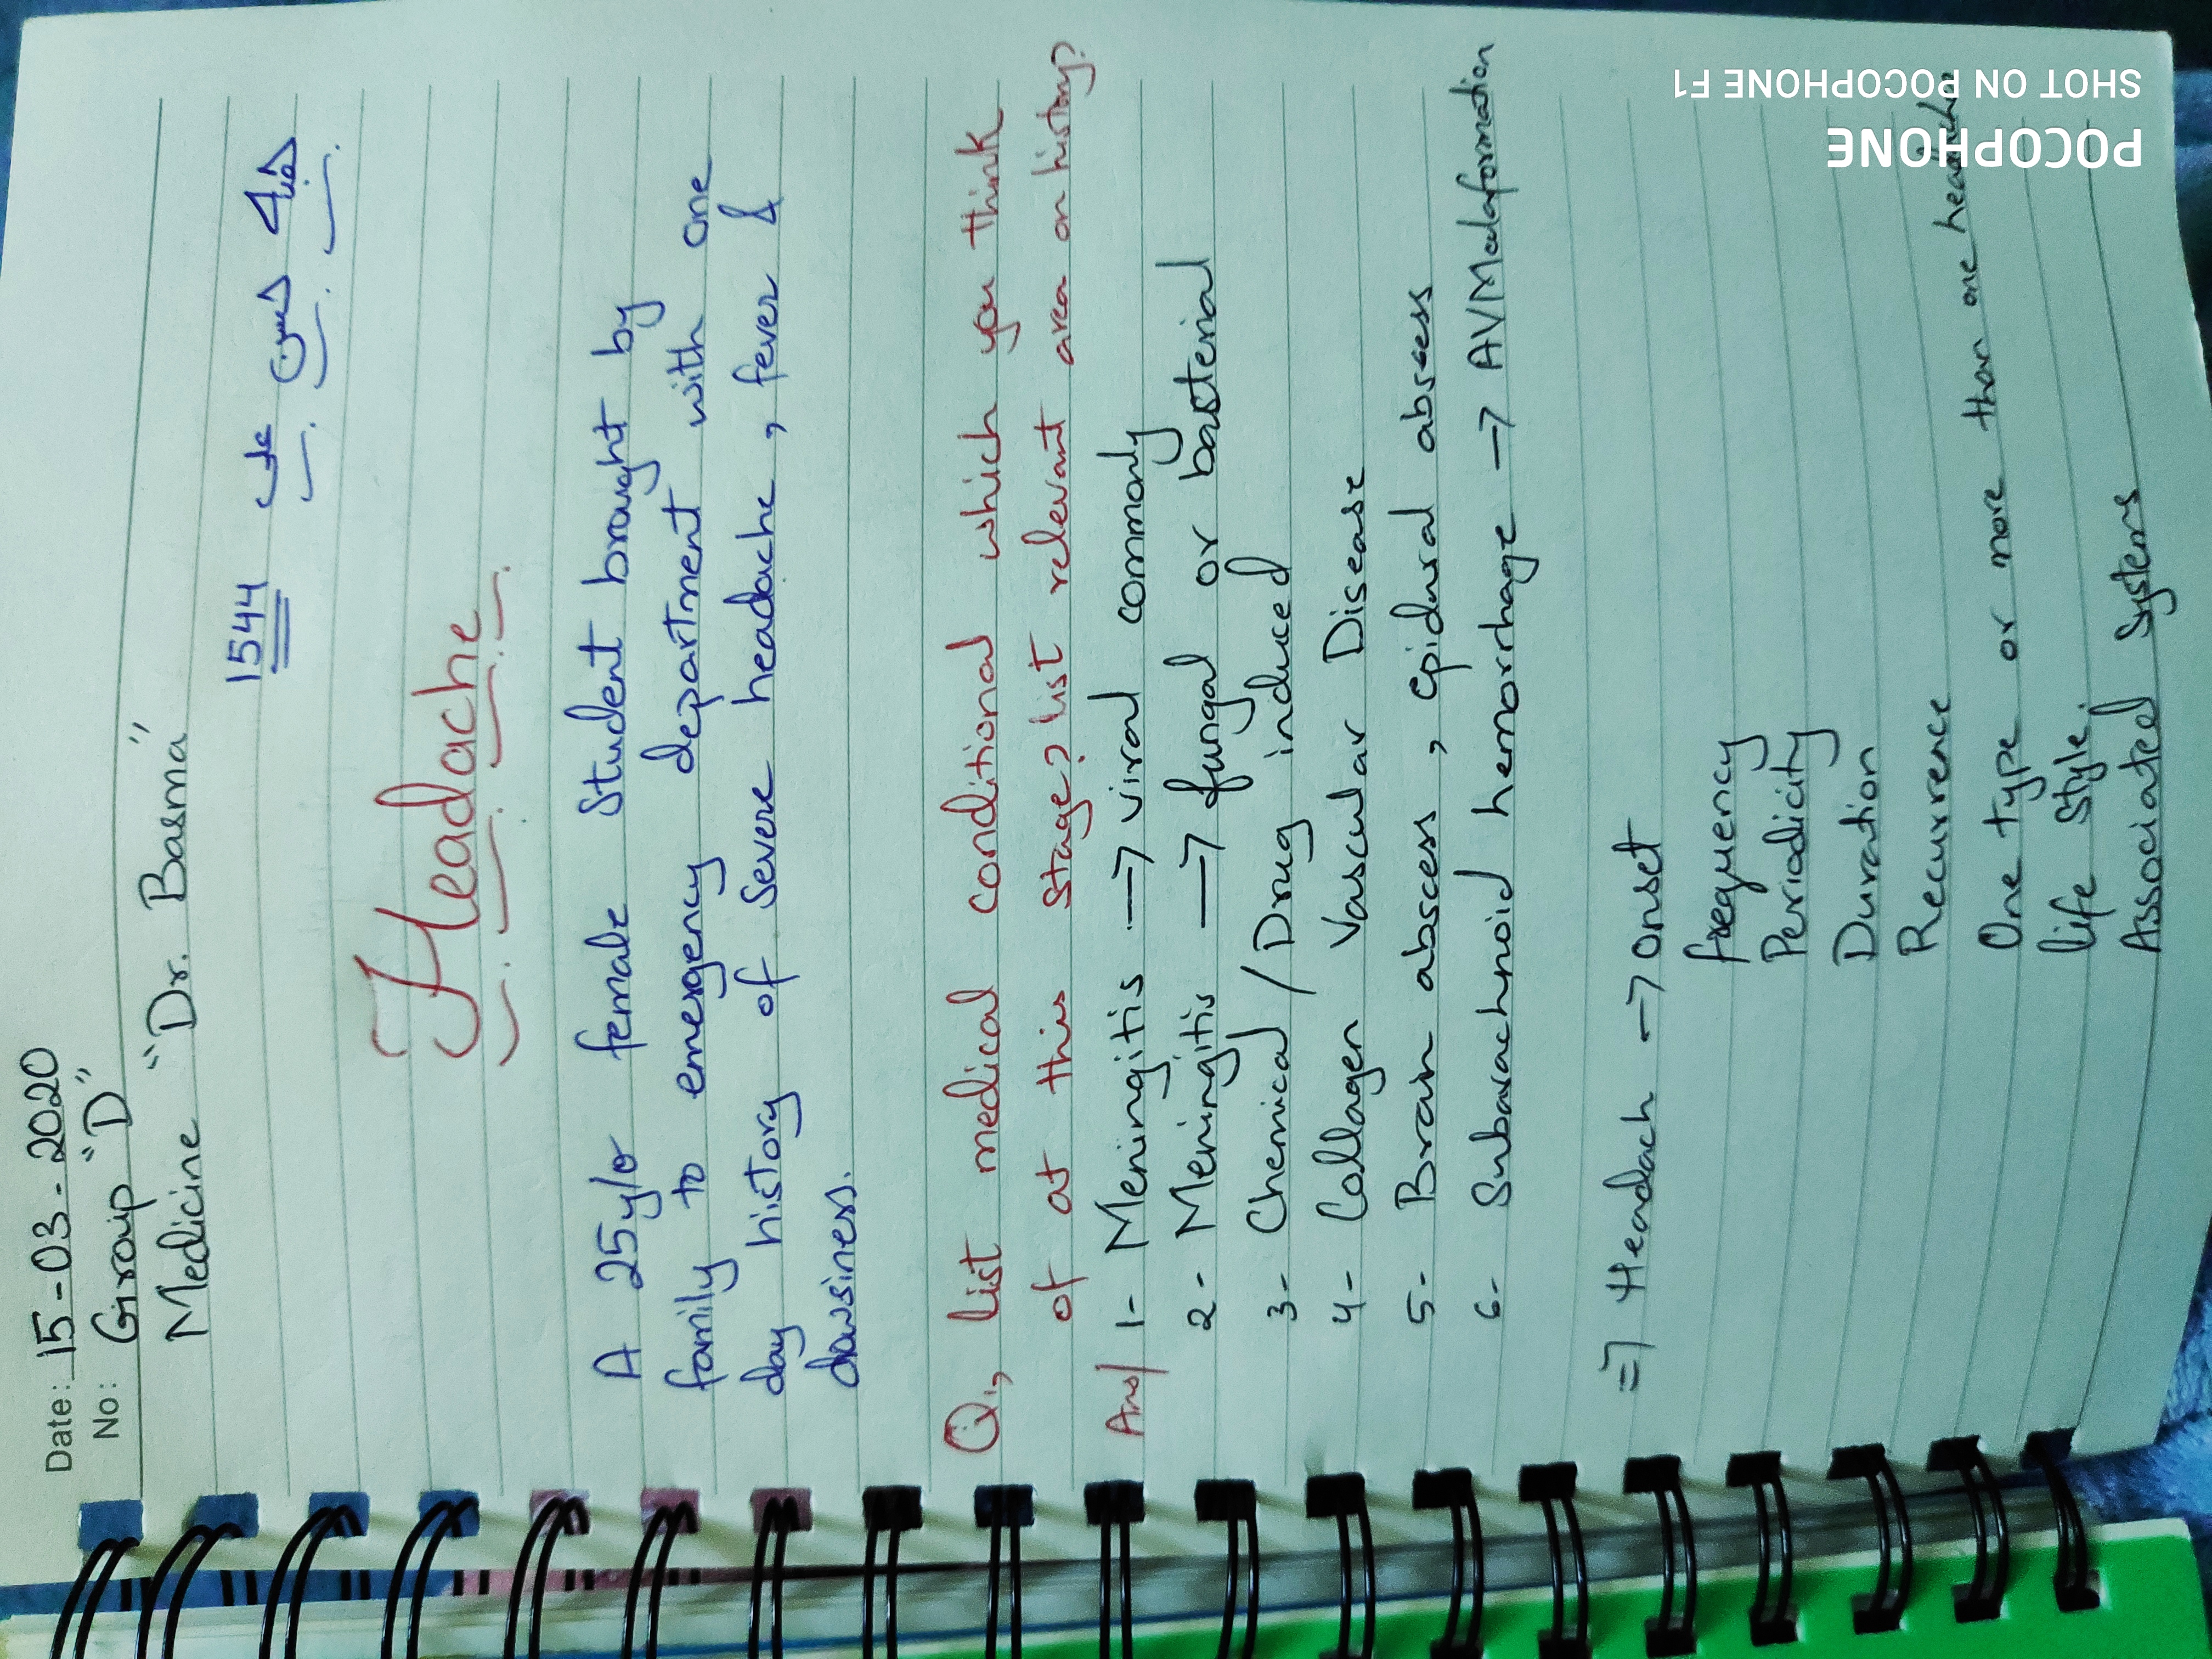 Date: 15-03-2020
No: Group "D"
Medicine "Dr. Basma"
1544
Headache
A 25y/o female Student brought by
family to emergency department with one
day history of severe headache, fever &
dowsiness.
Q1, list medical conditional which you think
of at this stage? list relevant area on history?
Ans/ 1- Meningitis → viral commonly
2- Meningitis → fungal or basterial
3- Chemical / Drug induced
4- Collagen Vascular Disease
5- Brain abscess, epidural absess
6- Subarachnoid hemorrhage → AVMalaformation
⇒ Headach → onset
frequency
Periodicity
Duration
Recurrence
One type or more than one headache
life style.
Associated Systems
SHOT ON POCOPHONE F1
POCOPHONE